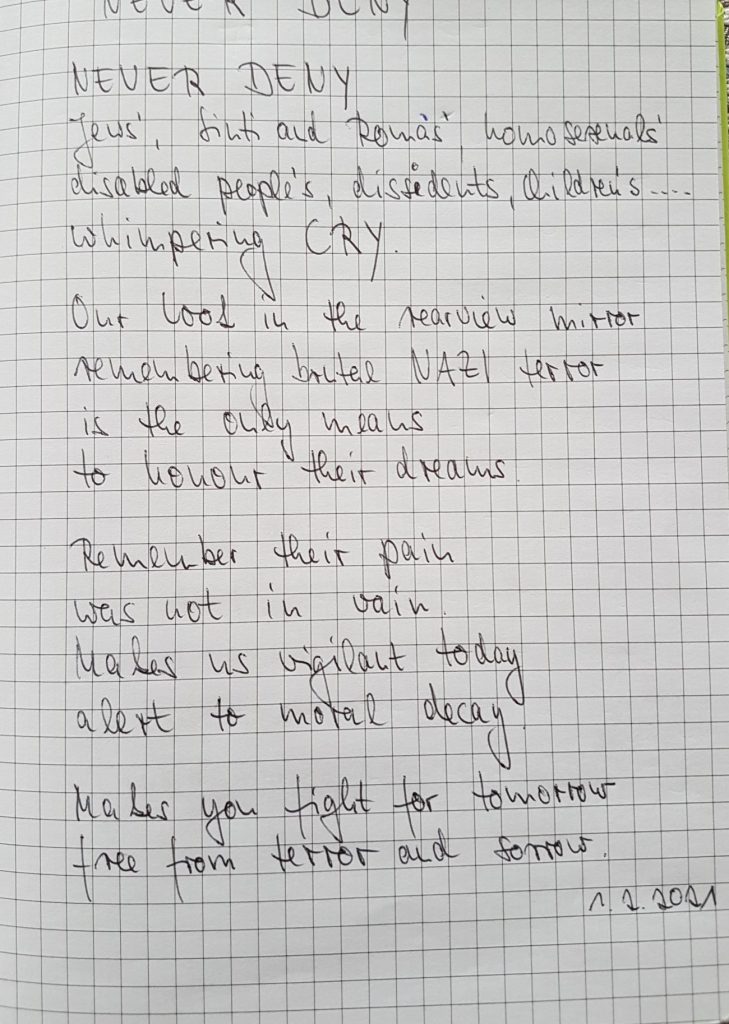 NEVER DENY
NEVER DENY
Jews', Sinti and Romas', homosexuals'
disabled people's, dissidents, children's....
whimpering CRY.
Our look in the rearview mirror
remembering brutal NAZI terror
is the only means
to honour their dreams.
Remember their pain
was not in vain.
Makes us vigilant today
alert to moral decay.
Makes you fight for tomorrow
free from terror and sorrow.
1.2.2021